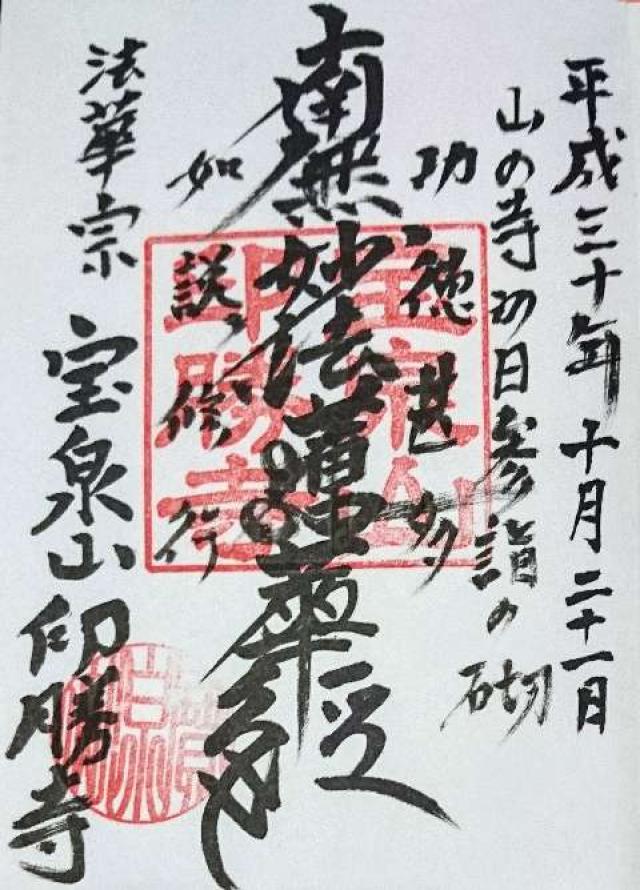 平成三十年十月二十一日
山の寺の日参詣の砌
功徳甚多
南無妙法蓮華経
如説修行
法華宗 宝泉山 印勝寺
宝泉山
印勝寺